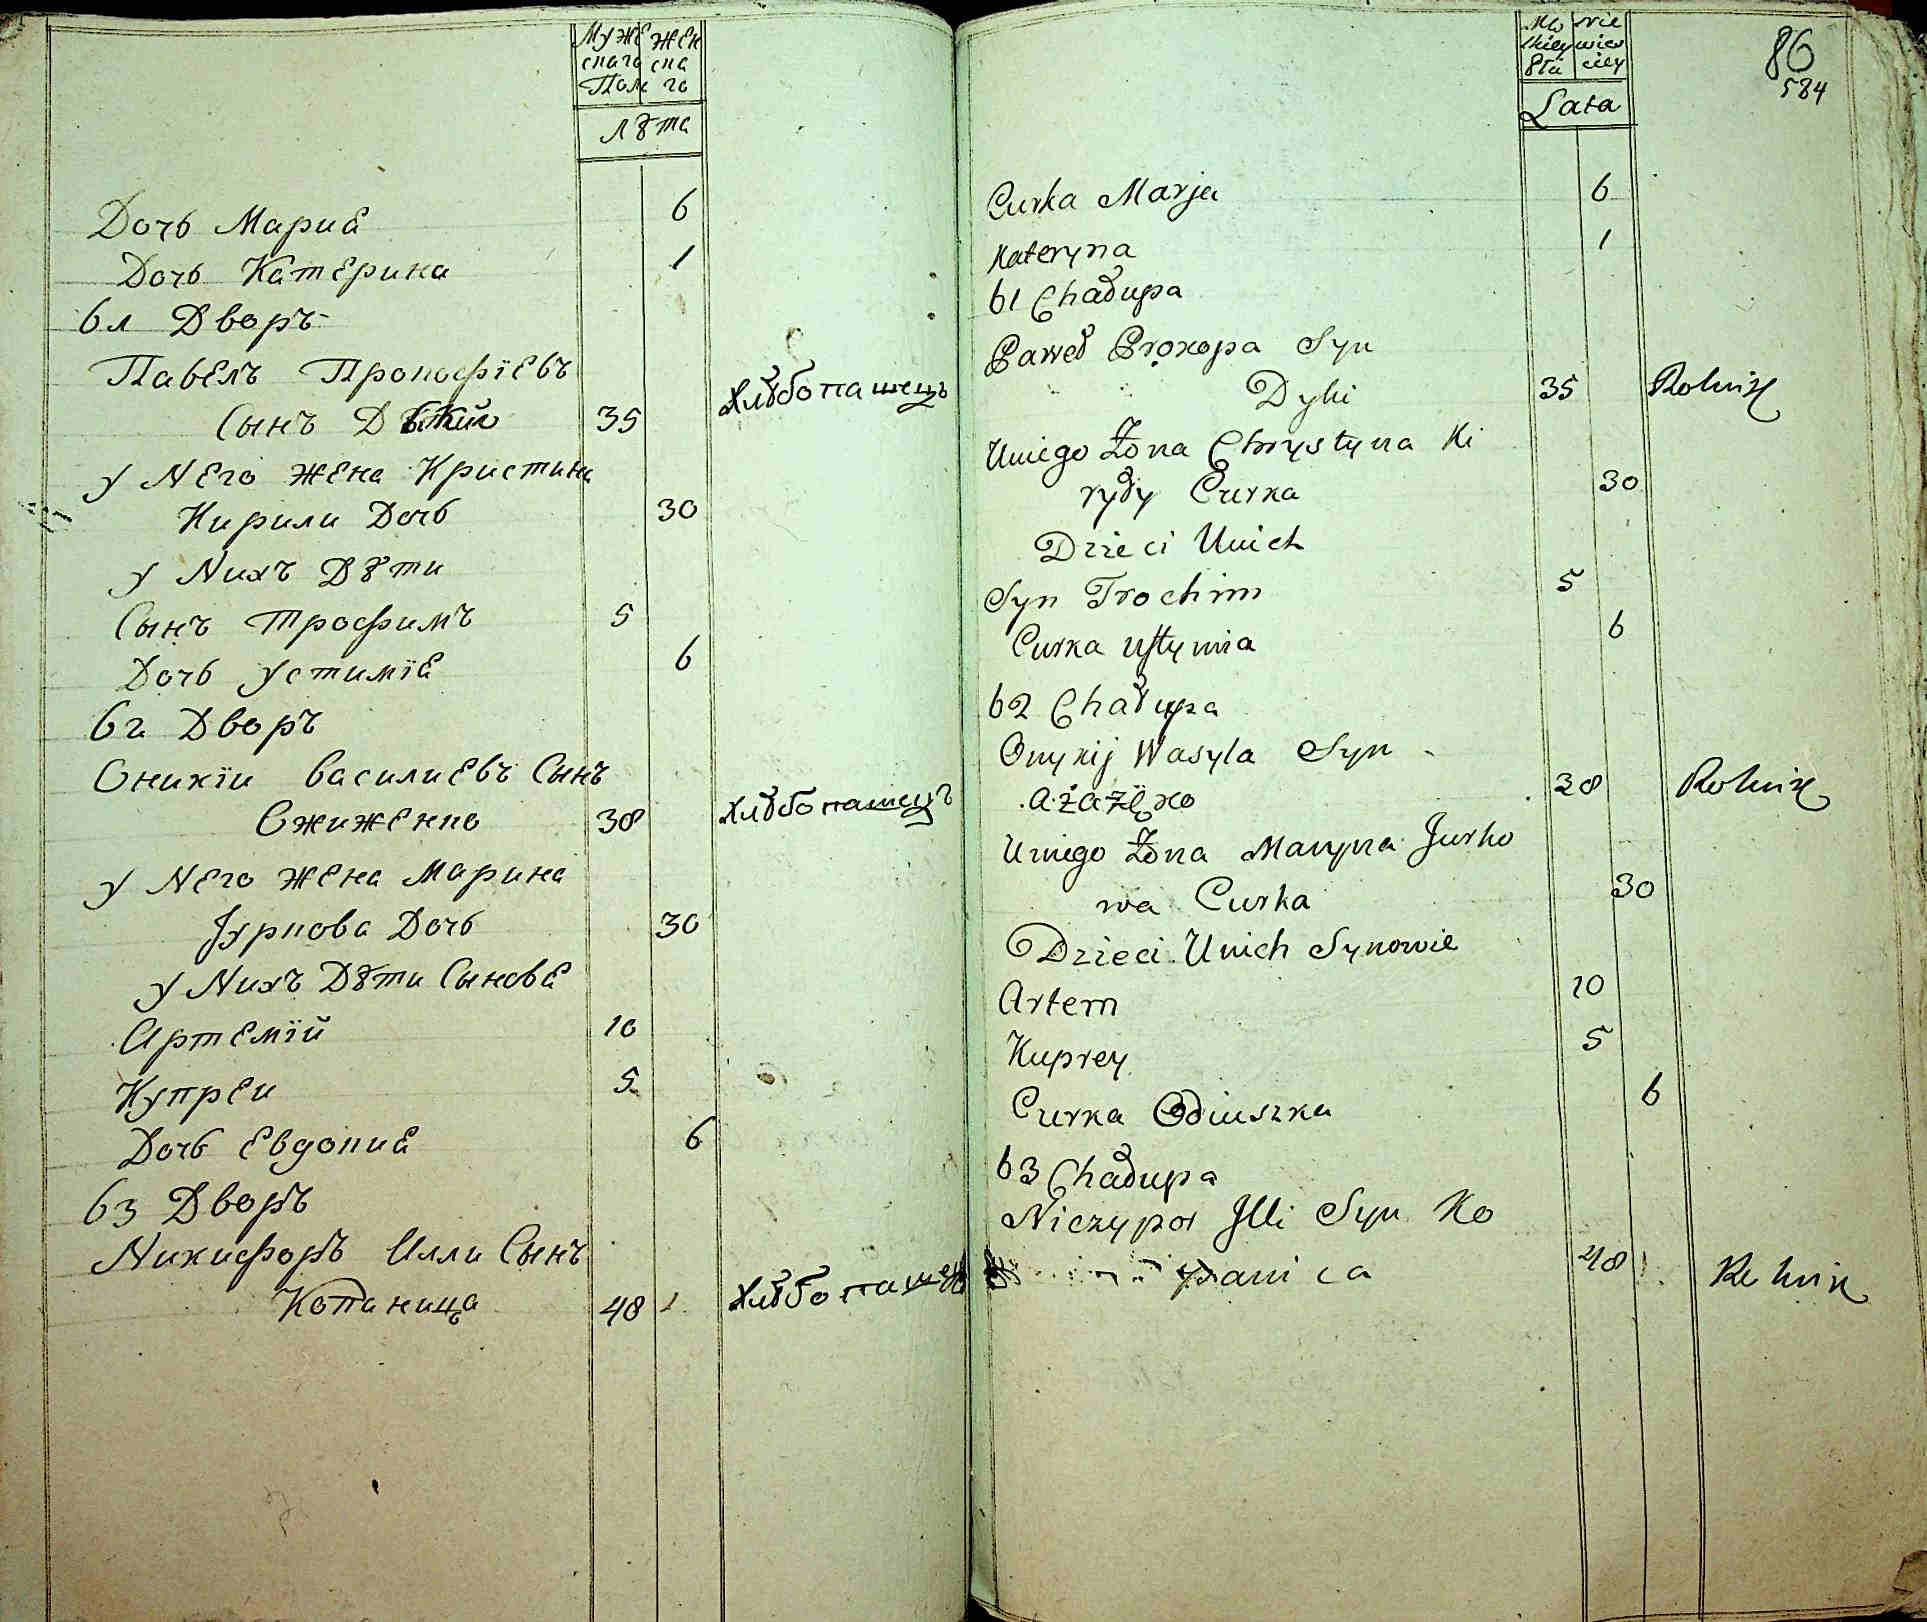 Муже жен
скаго ска
Пола го
лѣта
Дочь Мариа 6
Дочь Катерина 1
61 Дворъ
Павелъ Прокофїевъ
Сынъ 35 Хлѣбопашецъ
у Него жена Кристина
Кирили Дочь 30
у Нихъ Дѣти
Сынъ Трофимъ 5
Дочь Устимїа 6
62 Дворъ
Оникїи Василиевъ Сынъ
Ожиженко 38 Хлѣбопашецъ
у Него жена Марина
Јуркова Дочь 30
у Нихъ Дѣти Сыновѐ
Артемїй 10
Купреи 5
Дочь Евдокиа 6
63 Дворъ
Никифоръ Илли Сынъ
Копаница 48 Хлѣбопашецъ
86
584
Lata
Curka Marja 6
Kateryna 1
61 Chałupa
Paweł Prokopa Syn
Dyki 35 Rolnik
Uniego Żona Chrystyna Ki
ryły Curka 30
Dzieci Unich
Syn Trochim 5
Curka Ustynia 6
62 Chałupa
Onykij Wasyla Syn
38 Rolnik
Uniego Żona Maryna Jurko
wa Curka 30
Dzieci Unich Synowie
Artem 10
Kuprey 5
Curka Odiuszka 6
63 Chałupa
Niczypor Jlli Syn Ko
panica 48 Rolnik